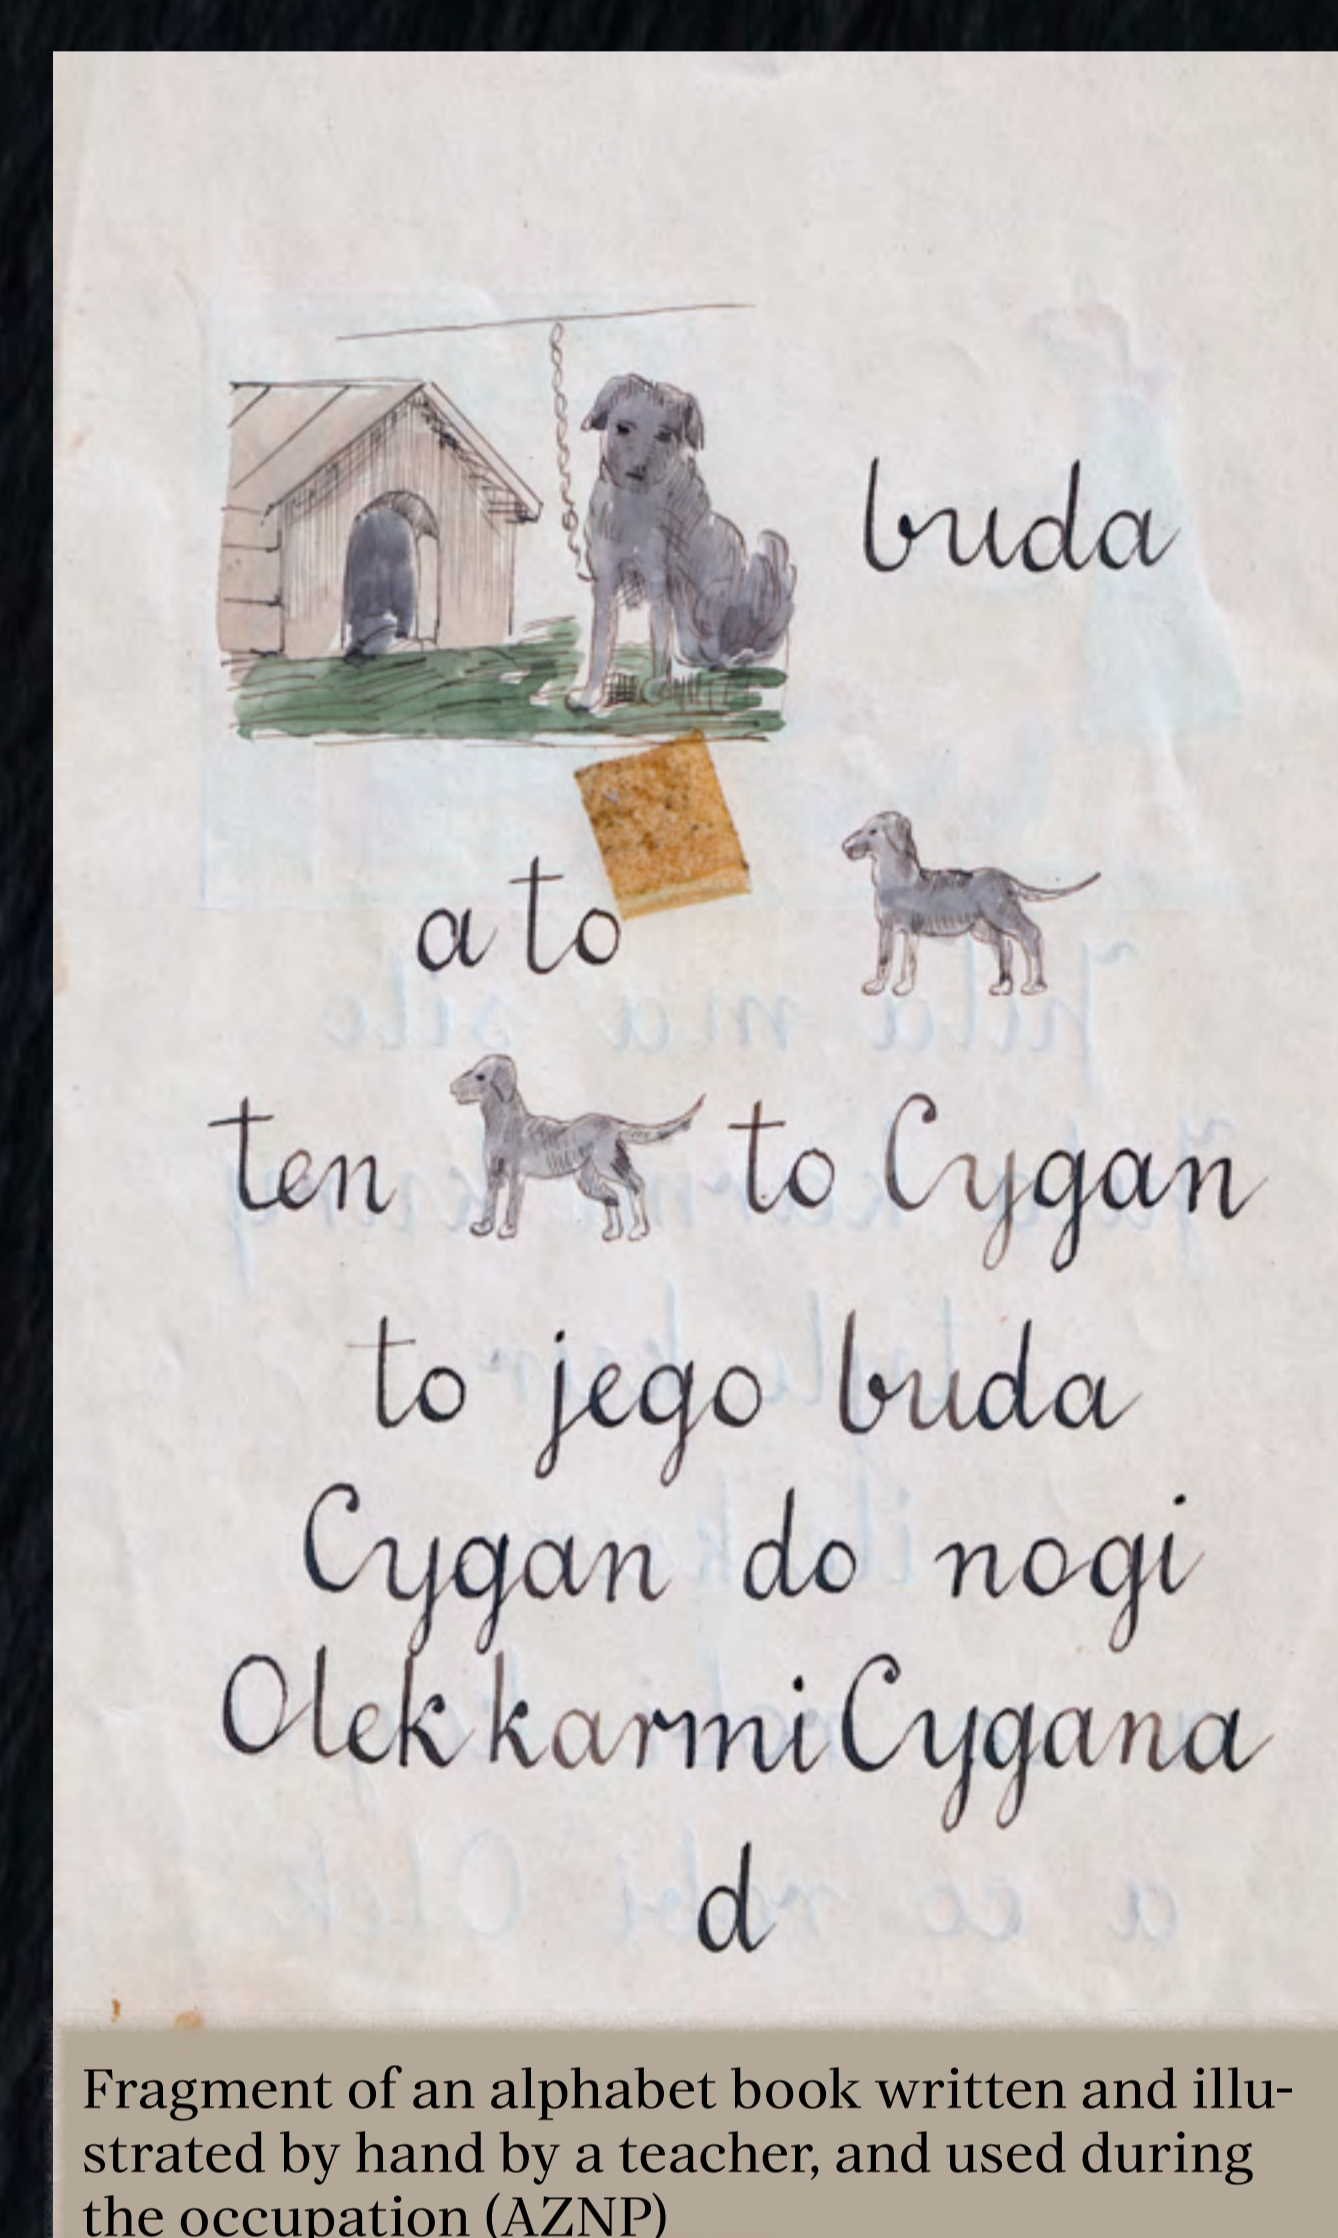 buda
a to
ten to Cygan
to jego buda
Cygan do nogi
Olek karmi Cygana
d
Fragment of an alphabet book written and illu-
strated by hand by a teacher, and used during
the occupation (AZNP)